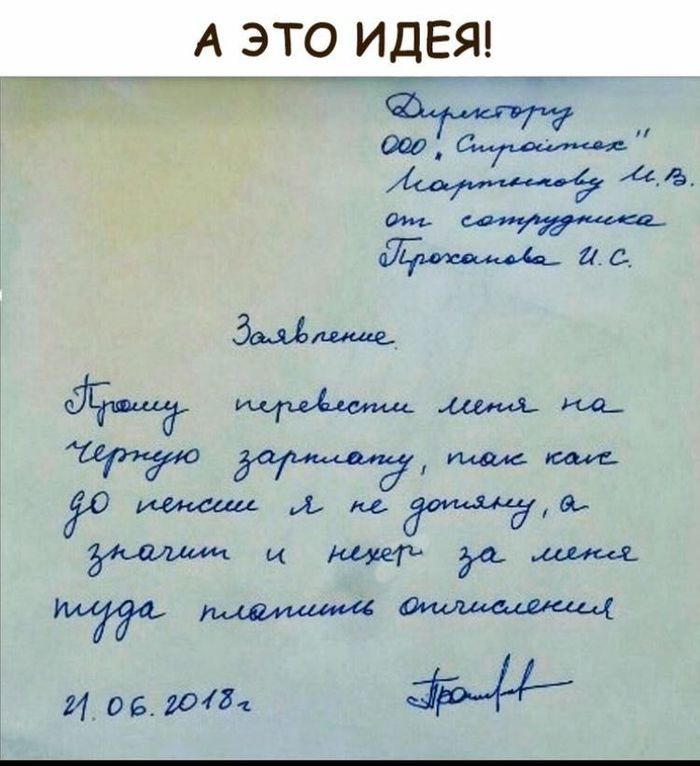 А ЭТО ИДЕЯ!
Директору
ООО „Стройтех"
Мартынову М.В.
от сотрудника
Проханова И.С.
Заявление.
Прошу перевести меня на
черную зарплату, так как
до пенсии я не дотяну, а
значит и нехер за меня
туда платить отчисления
21.06.2018г